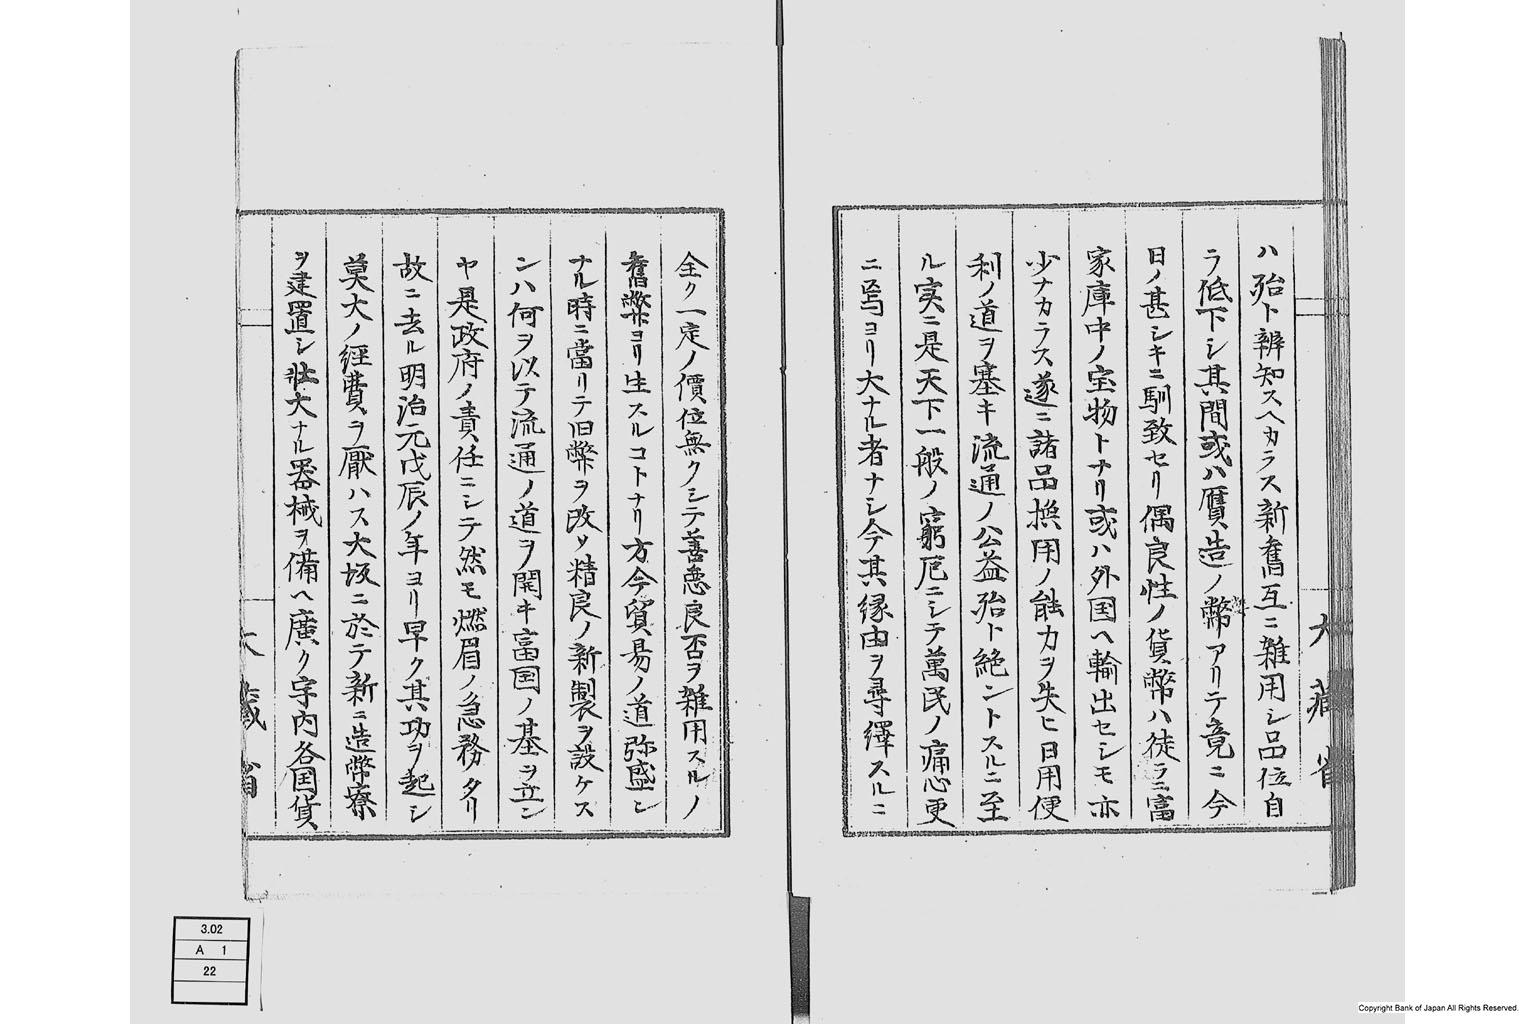 ハ殆ト辨知スヘカラス新舊互ニ雜用シ品位自
ラ低下シ其間或ハ贋造ノ幣アリテ竟ニ今
日ノ甚シキニ馴致セリ偶良性ノ貨幣ハ徒ラニ富
家庫中ノ宝物トナリ或ハ外国ヘ輸出セシモ亦
少ナカラス遂ニ諸品換用ノ能力ヲ失ヒ日用便
利ノ道ヲ塞キ流通ノ公益殆ト絶ントスルニ至
ル実ニ是天下一般ノ窮厄ニシテ萬民ノ痛心更
ニ焉ヨリ大ナル者ナシ今其縁由ヲ尋繹スルニ
大藏省
全ク一定ノ價位無クシテ善悪良否ヲ雑用スルノ
舊弊ヨリ生スルコトナリ方今貿易ノ道弥盛ン
ナル時ニ當リテ旧幣ヲ改メ精良ノ新製ヲ設ケス
ンハ何ヲ以テ流通ノ道ヲ開キ富国ノ基ヲ立ン
ヤ是政府ノ責任ニシテ然モ燃眉ノ急務タリ
故ニ去ル明治元戊辰ノ年ヨリ早ク其功ヲ起シ
莫大ノ經費ヲ厭ハス大坂ニ於テ新ニ造幣寮
ヲ建置シ壮大ナル器械ヲ備ヘ廣ク宇内各国貨
大藏省
3.02
A 1
22
Copyright Bank of Japan All Rights Reserved.